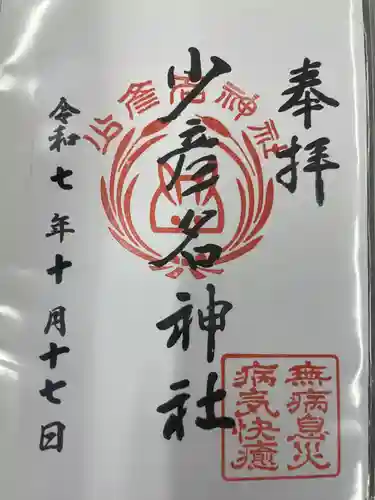 奉拝
少彦名神社
少彦名神社
無病息災
病気快癒
令和七年十月十七日